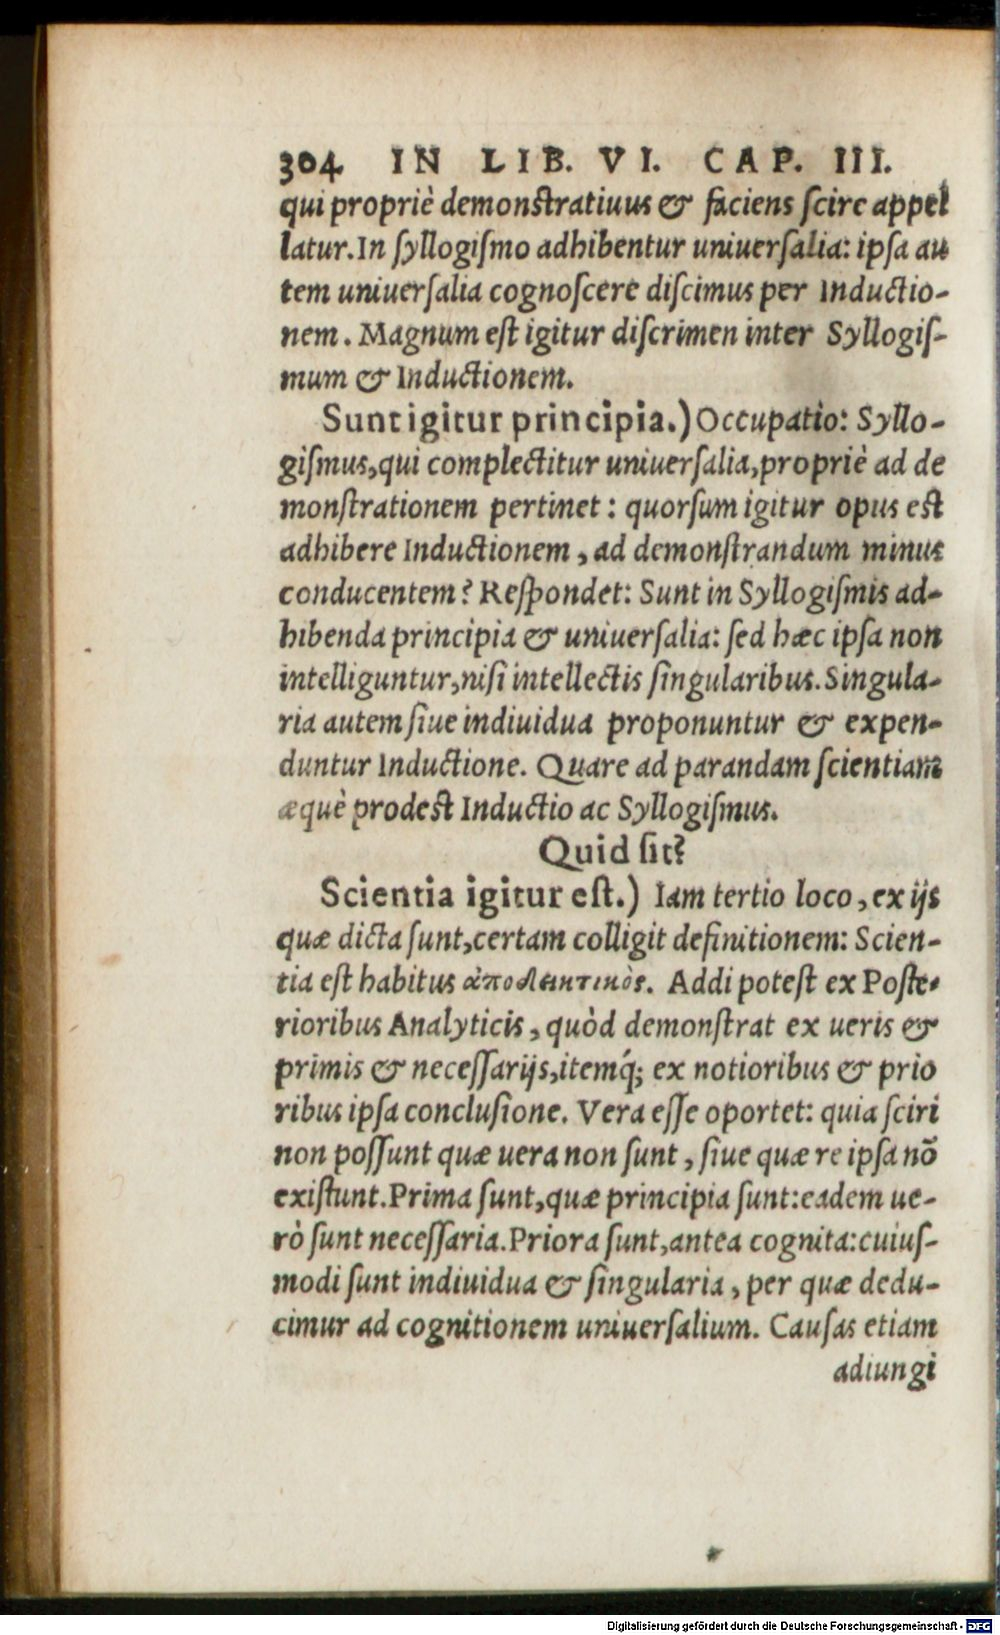 304 IN LIB. VI. CAP. III.
qui propriè demonſtratiuus & faciens ſcire appel
latur. In ſyllogiſmo adhibentur uniuerſalia: ipſa au
tem uniuerſalia cognoſcere diſcimus per Inductio-
nem. Magnum eſt igitur diſcrimen inter Syllogiſ-
mum & Inductionem.
Sunt igitur principia.) Occupatio: Syllo-
giſmus, qui complectitur uniuerſalia, propriè ad de
monſtrationem pertinet: quorſum igitur opus eſt
adhibere Inductionem, ad demonſtrandum minus
conducentem? Reſpondet: Sunt in Syllogiſmis ad-
hibenda principia & uniuerſalia: ſed hæc ipſa non
intelliguntur, niſi intellectis ſingularibus. Singula-
ria autem ſiue indiuidua proponuntur & expen-
duntur Inductione. Quare ad parandam ſcientiam
æquè prodeſt Inductio ac Syllogiſmus.
Quid ſit?
Scientia igitur eſt.) Iam tertio loco, ex ijs
quæ dicta ſunt, certam colligit definitionem: Scien-
tia eſt habitus ἀποδεικτικὸς. Addi poteſt ex Poſte-
rioribus Analyticis, quòd demonſtrat ex ueris &
primis & neceſſarijs, itemq́; ex notioribus & prio
ribus ipſa concluſione. Vera eſſe oportet: quia ſciri
non poſſunt quæ uera non ſunt, ſiue quæ re ipſa nō
exiſtunt. Prima ſunt, quæ principia ſunt: eadem ue-
rò ſunt neceſſaria. Priora ſunt, antea cognita: cuiuſ-
modi ſunt indiuidua & ſingularia, per quæ dedu-
cimur ad cognitionem uniuerſalium. Cauſas etiam
adiungi
Digitalisierung gefördert durch die Deutsche Forschungsgemeinschaft - DFG